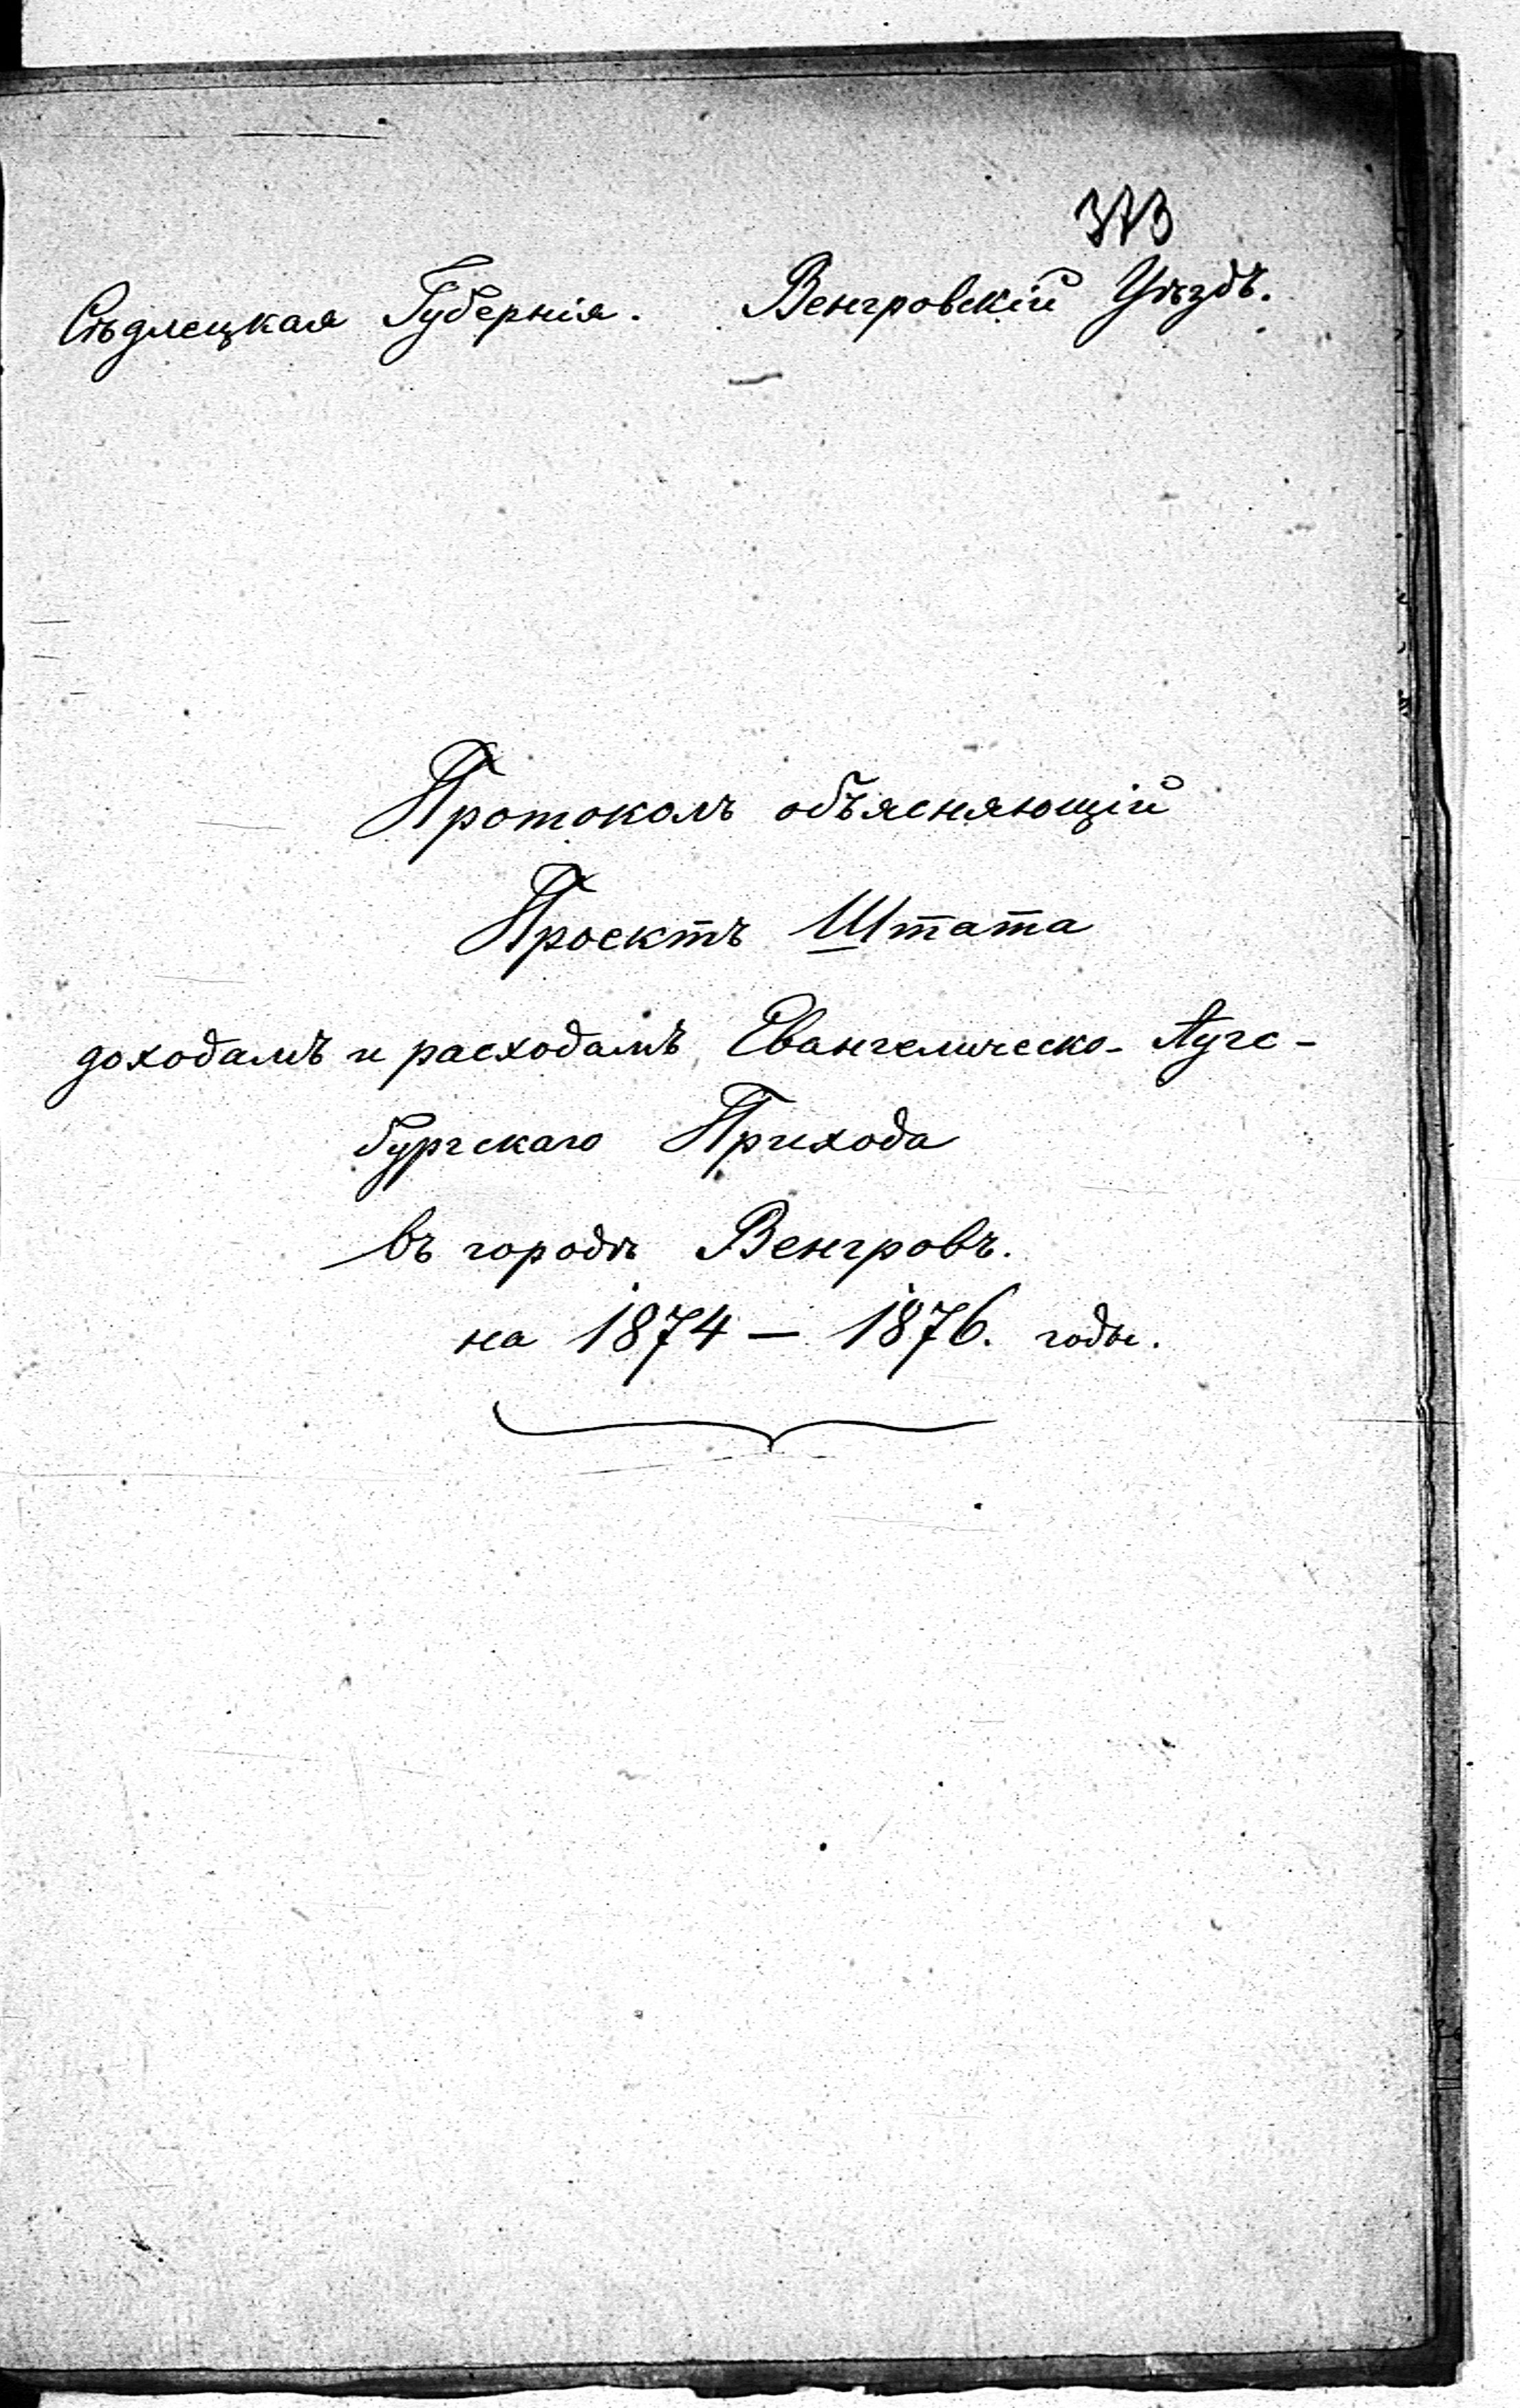 373
Сѣдлецкая Губернія. Венгровскій Уѣздъ.
Протоколъ объясняющій
Проектъ Штата
доходамъ и расходамъ Евангелическо-Аугс-
бургскаго Прихода
въ городѣ Венгровѣ.
на 1874 — 1876. годы.